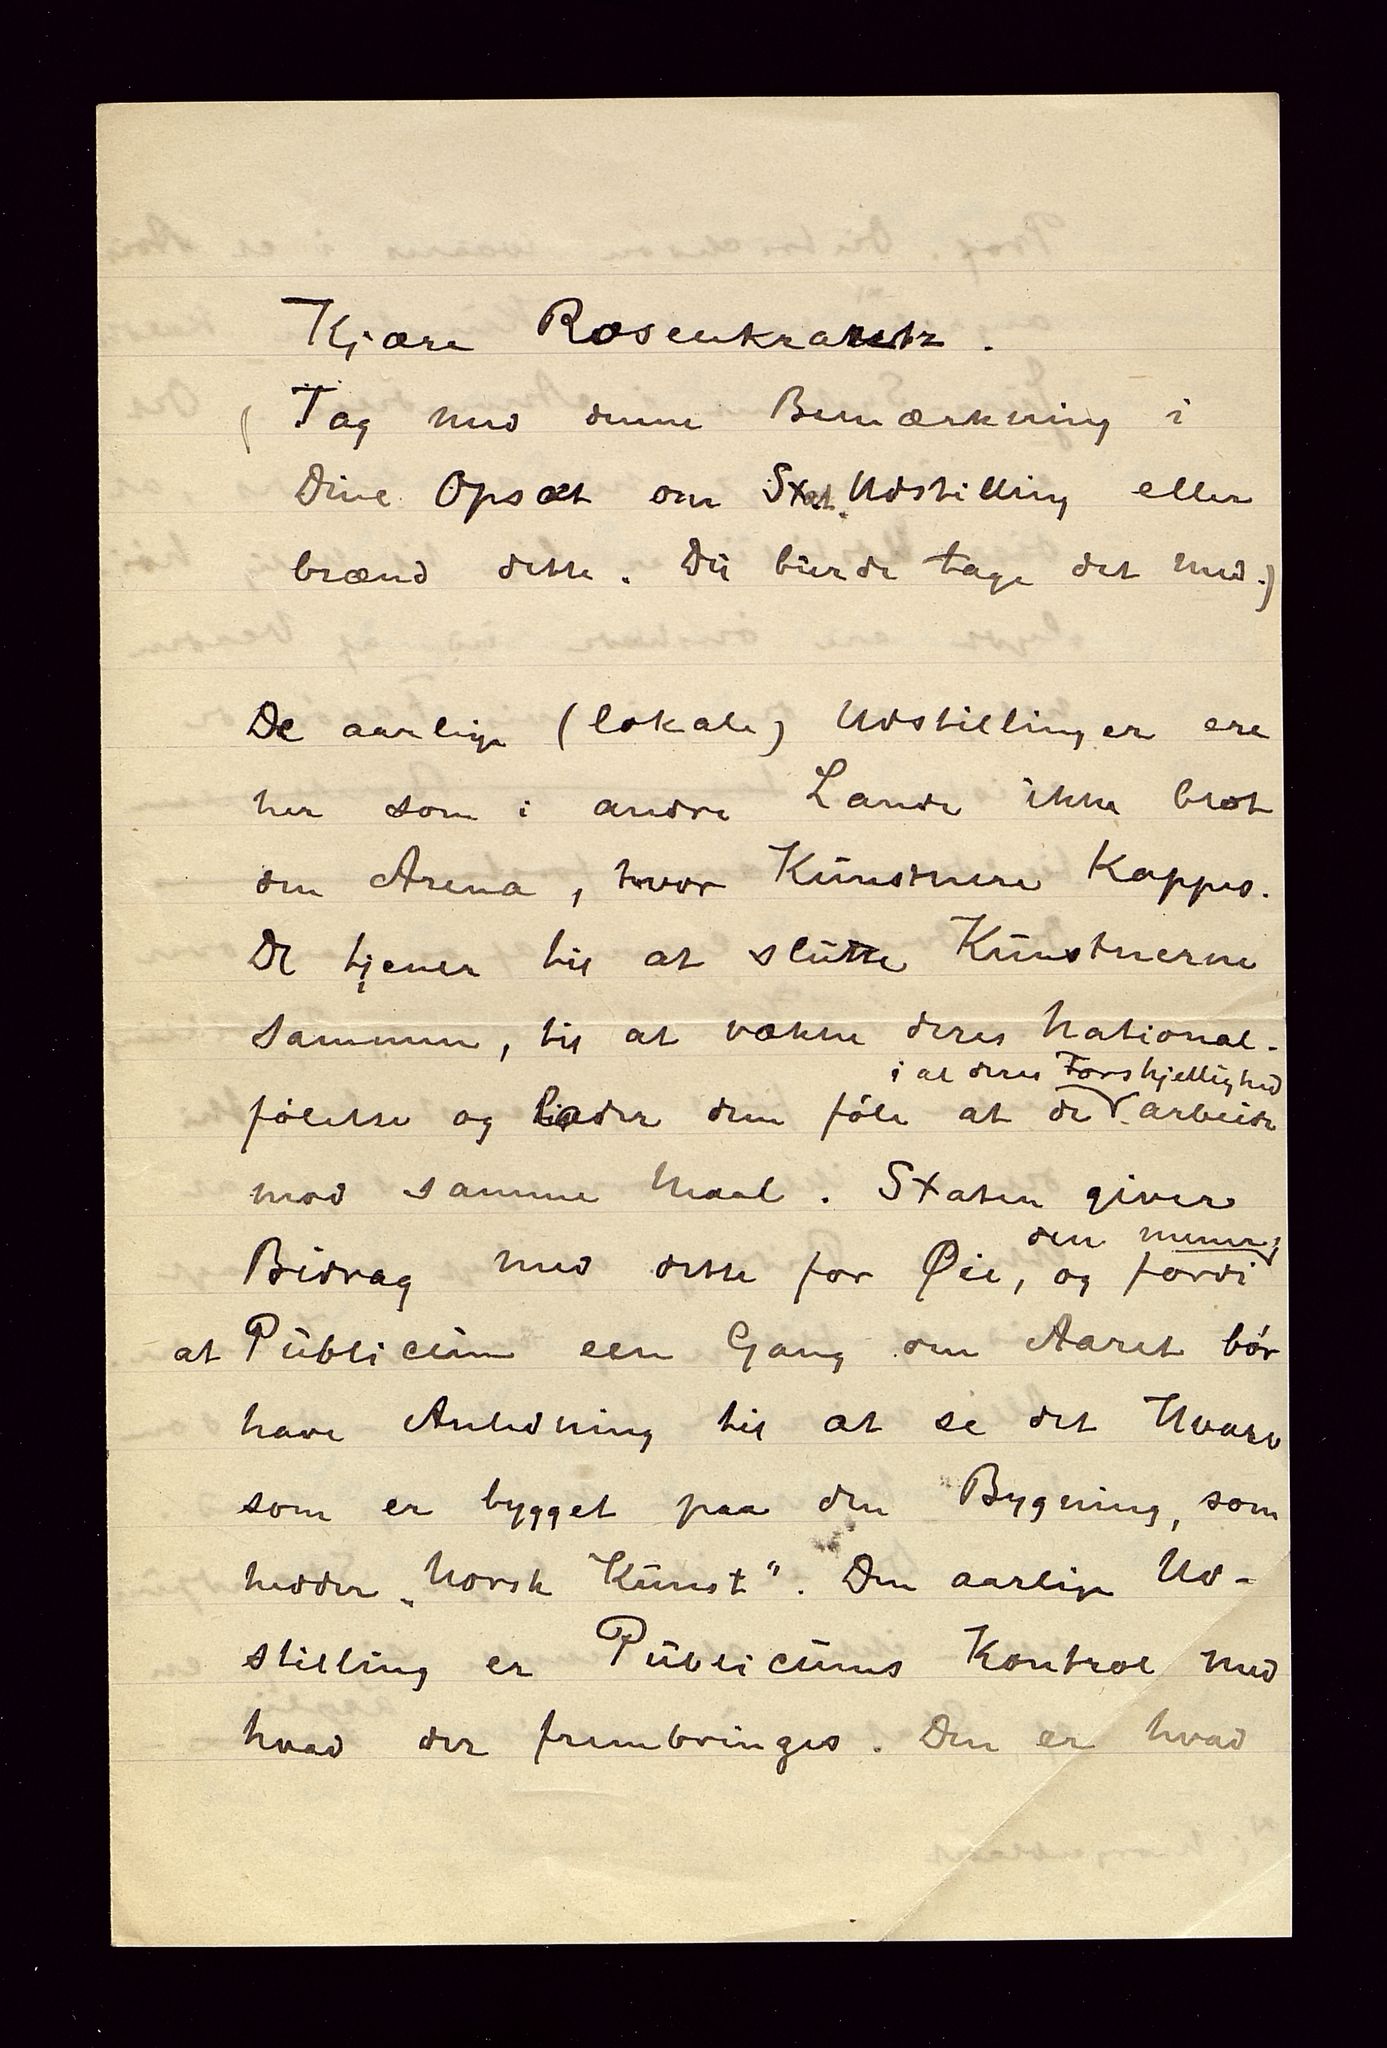 Kjære Rosenkrantz.
(Tag med denne Bemærkning i
Dine Opsæt om Stat. Udstilling eller
brænd dette. Du burde tage det med.)
De aarlige (lokale) Udstillinger ere
her som i andre Lande ikke blot
en Arena, hvor Kunstnere Kappes.
De tjener til at slutte Kunstnerne
sammen, til at vække deres National-
i al deres Forskjellighed
følelse og lader dem føle at de arbeide
mod samme Maal. Staten giver
den mener,
Bidrag med dette for Øie, og fordi
at Publicum een Gang om Aaret bør
have Anledning til at se det
som er bygget paa den Bygning, som
hedder „Norsk Kunst“. Den aarlige Ud-
stilling er Publicums Kontrol med
hvad der frembringes. Den er hvad